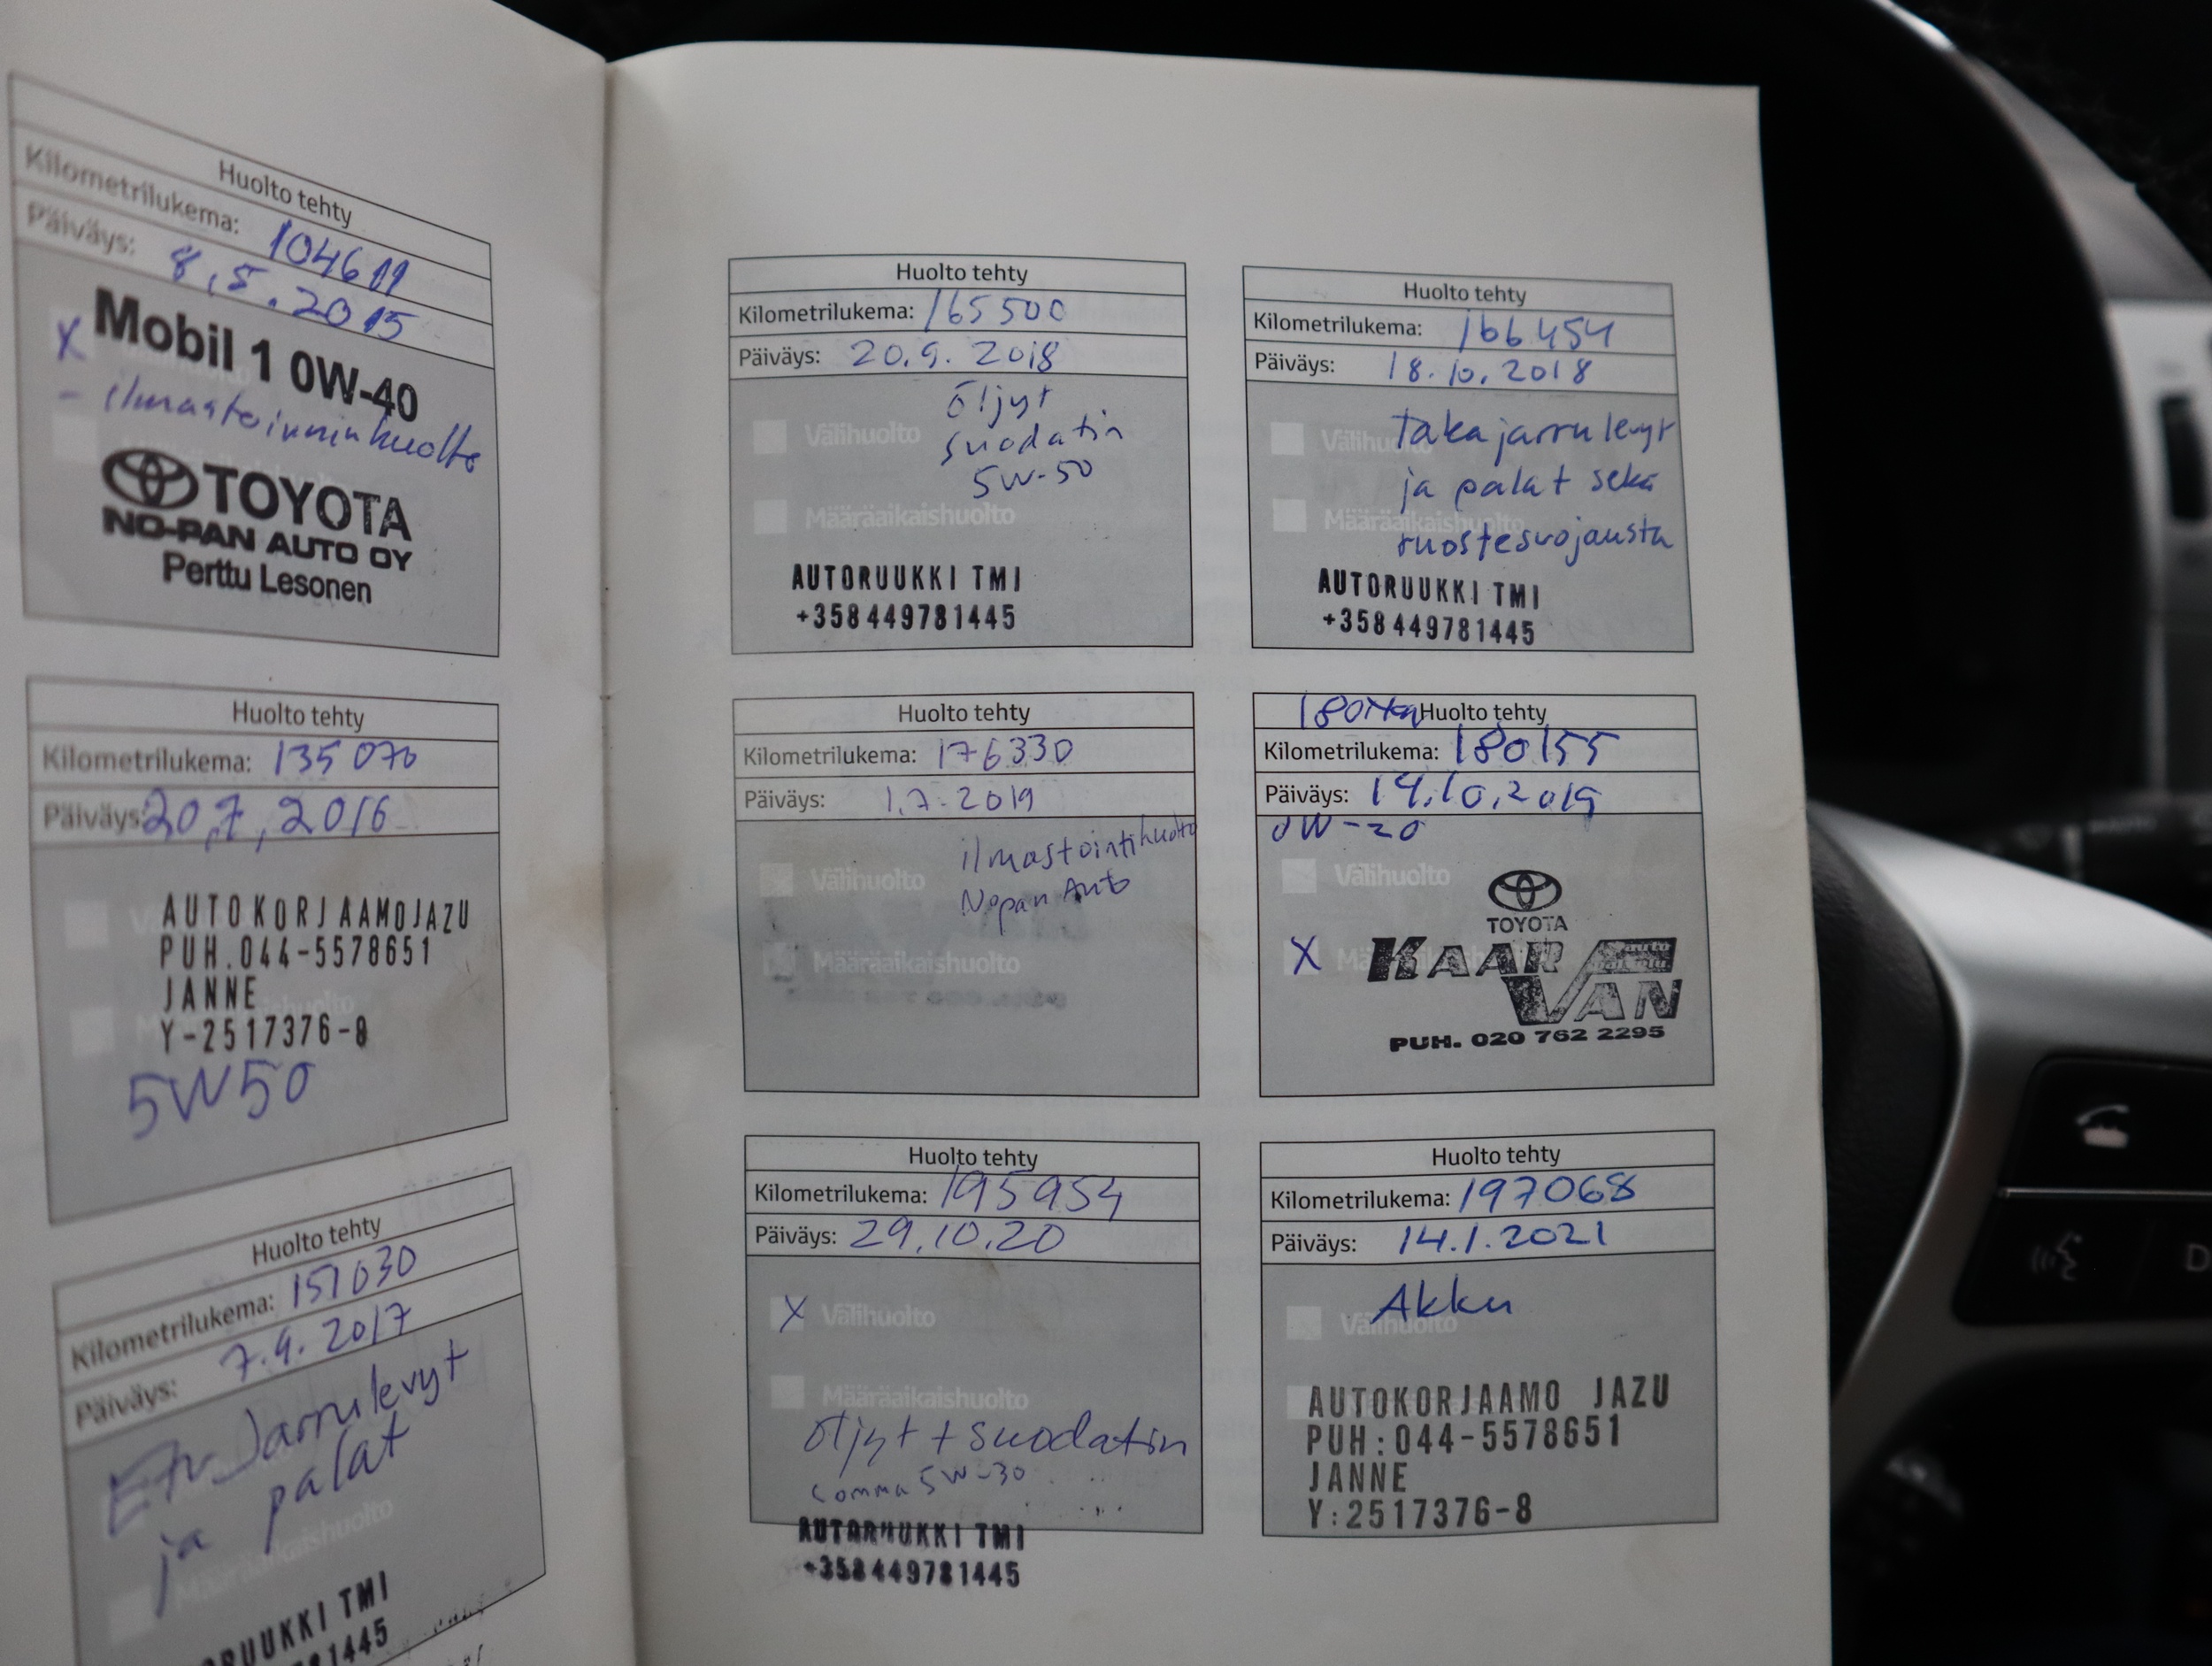 Huolto tehty
Kilometrilukema: 104619
Päiväys: 8.5.2015
X Mobil 1 0W-40
- ilmastoinninhuolto
TOYOTA
NO-PAN AUTO OY
Perttu Lesonen
Huolto tehty
Kilometrilukema: 135070
Päiväys: 20,7,2016
AUTOKORJAAMOJAZU
PUH.044-5578651
JANNE
Y-2517376-8
5W50
Huolto tehty
Kilometrilukema: 151030
Päiväys: 7.9.2017
Etu Jarrulevyt
ja palat
Määräaikaishuolto
RUUKKI TMI
1445
Huolto tehty
Kilometrilukema: 165500
Päiväys: 20.9.2018
öljyt
Välihuolto
suodatin
5W-50
Määräaikaishuolto
AUTORUUKKI TMI
+358449781445
Huolto tehty
Kilometrilukema: 166454
Päiväys: 18.10.2018
Takajarrulevyt
Välihuolto
ja palat sekä
Määräaikaishuolto
ruostesuojausta
AUTORUUKKI TMI
+358449781445
Huolto tehty
Kilometrilukema: 176330
Päiväys: 1.7.2019
ilmastointihuolto
Välihuolto
Nopan Auto
Määräaikaishuolto
Huolto tehty
Kilometrilukema: 180155
Päiväys: 14.10.2019
0W-20
Välihuolto
TOYOTA
X
KAAR
VAN
PUH. 020 762 2295
Huolto tehty
Kilometrilukema: 195954
Päiväys: 29.10.20
X Välihuolto
Määräaikaishuolto
öljyt + suodatin
comma 5W-30
AUTORUUKKI TMI
+358449781445
Huolto tehty
Kilometrilukema: 197068
Päiväys: 14.1.2021
Akku
Välihuolto
AUTOKORJAAMO JAZU
PUH:044-5578651
JANNE
Y:2517376-8